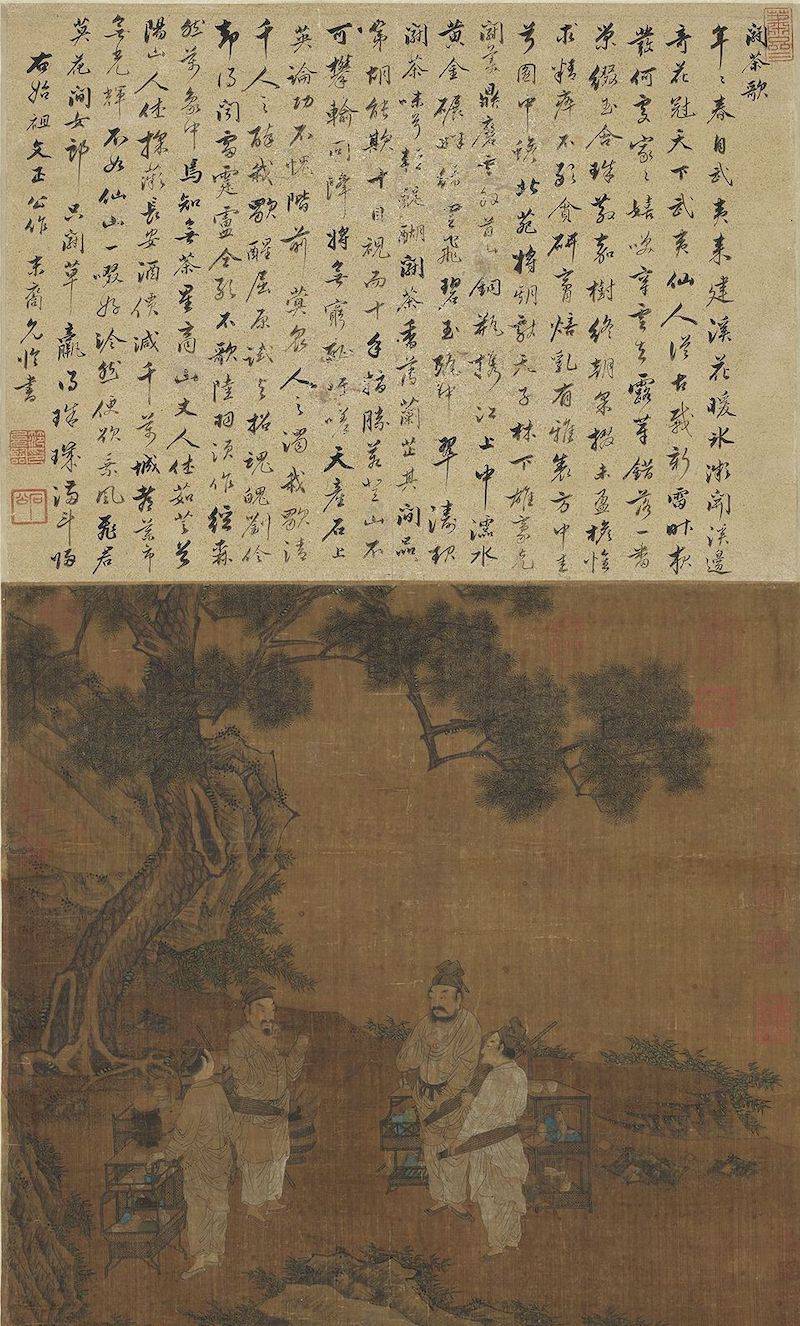 鬬茶歌
年〻春自武夷来建溪花暖冰微開溪邊
奇花冠天下武夷仙人從古栽新雷昨夜
發何處家〻嬉笑穿雲去露芽錯落一番
榮綴玉含珠散嘉樹終朝采掇未盈襜惟
求精粹不敢貪研膏焙乳有雅製方中圭
兮圓中蟾北苑將期獻天子林下雄豪先
鬬美鼎磨雲外首山銅瓶携江上中濡水
黄金碾畔緑塵飛碧玉甌中翠濤起
鬬茶味兮輕醍醐鬬茶香薄蘭芷其間品
第胡能欺十目視而十手指勝若登山不
可攀輸同降將無窮恥吁嗟天産石上
英論功不愧階前蓂衆人之濁我歌清
千人之醉我歌醒屈原試與招魂魄劉伶
却得聞雷霆盧仝敢不歌陸羽須作經森
然萬象中焉知無茶星商山丈人休茹芝首
陽山人休採薇長安酒價減千萬城都藥市
無光輝不如仙山一啜好泠然便欲乘風飛君
莫花間女郎只鬬草贏得珠璣滿斗歸
右始祖文正公作末裔允臨書